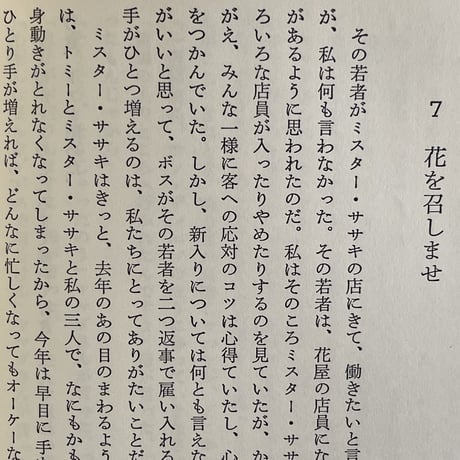 7 花を召しませ
その若者がミスター・ササキの店にきて、働きたいと言
が、私は何も言わなかった。その若者は、花屋の店員にな
があるように思われたのだ。私はそのころミスター・ササ
ろいろな店員が入ったりやめたりするのを見ていたが、か
がえ、みんな一様に客への応対のコツは心得ていたし、心
をつかんでいた。しかし、新入りについては何とも言えな
がいいと思って、ボスがその若者を二つ返事で雇い入れる
手がひとつ増えるのは、私たちにとってありがたいことだ
ミスター・ササキはきっと、去年のあの目のまわるよう
は、トミーとミスター・ササキと私の三人で、なにもかも
身動きがとれなくなってしまったから、今年は早目に手
ひとり手が増えれば、どんなに忙しくなってもオーケーな